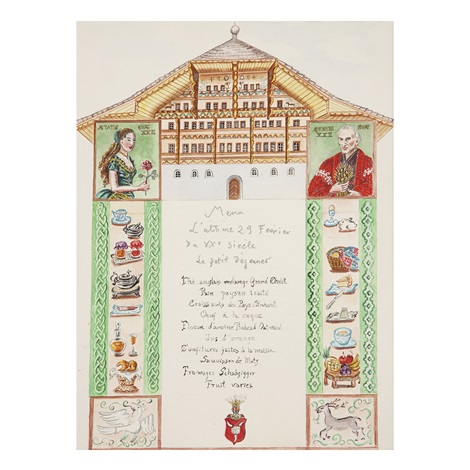 Menu
L'ultime 29 Février
du XXe siècle
Le petit Déjeuner
Thé anglais mélange Grand Chalet
Pain paysan toasté
Croissants du Pays
Oeuf à la coque
Flocon d'avoine
Jus d'orange
Confitures faites à la maison
Saucisson de Metz
Fromages Schabziger
Fruit variés